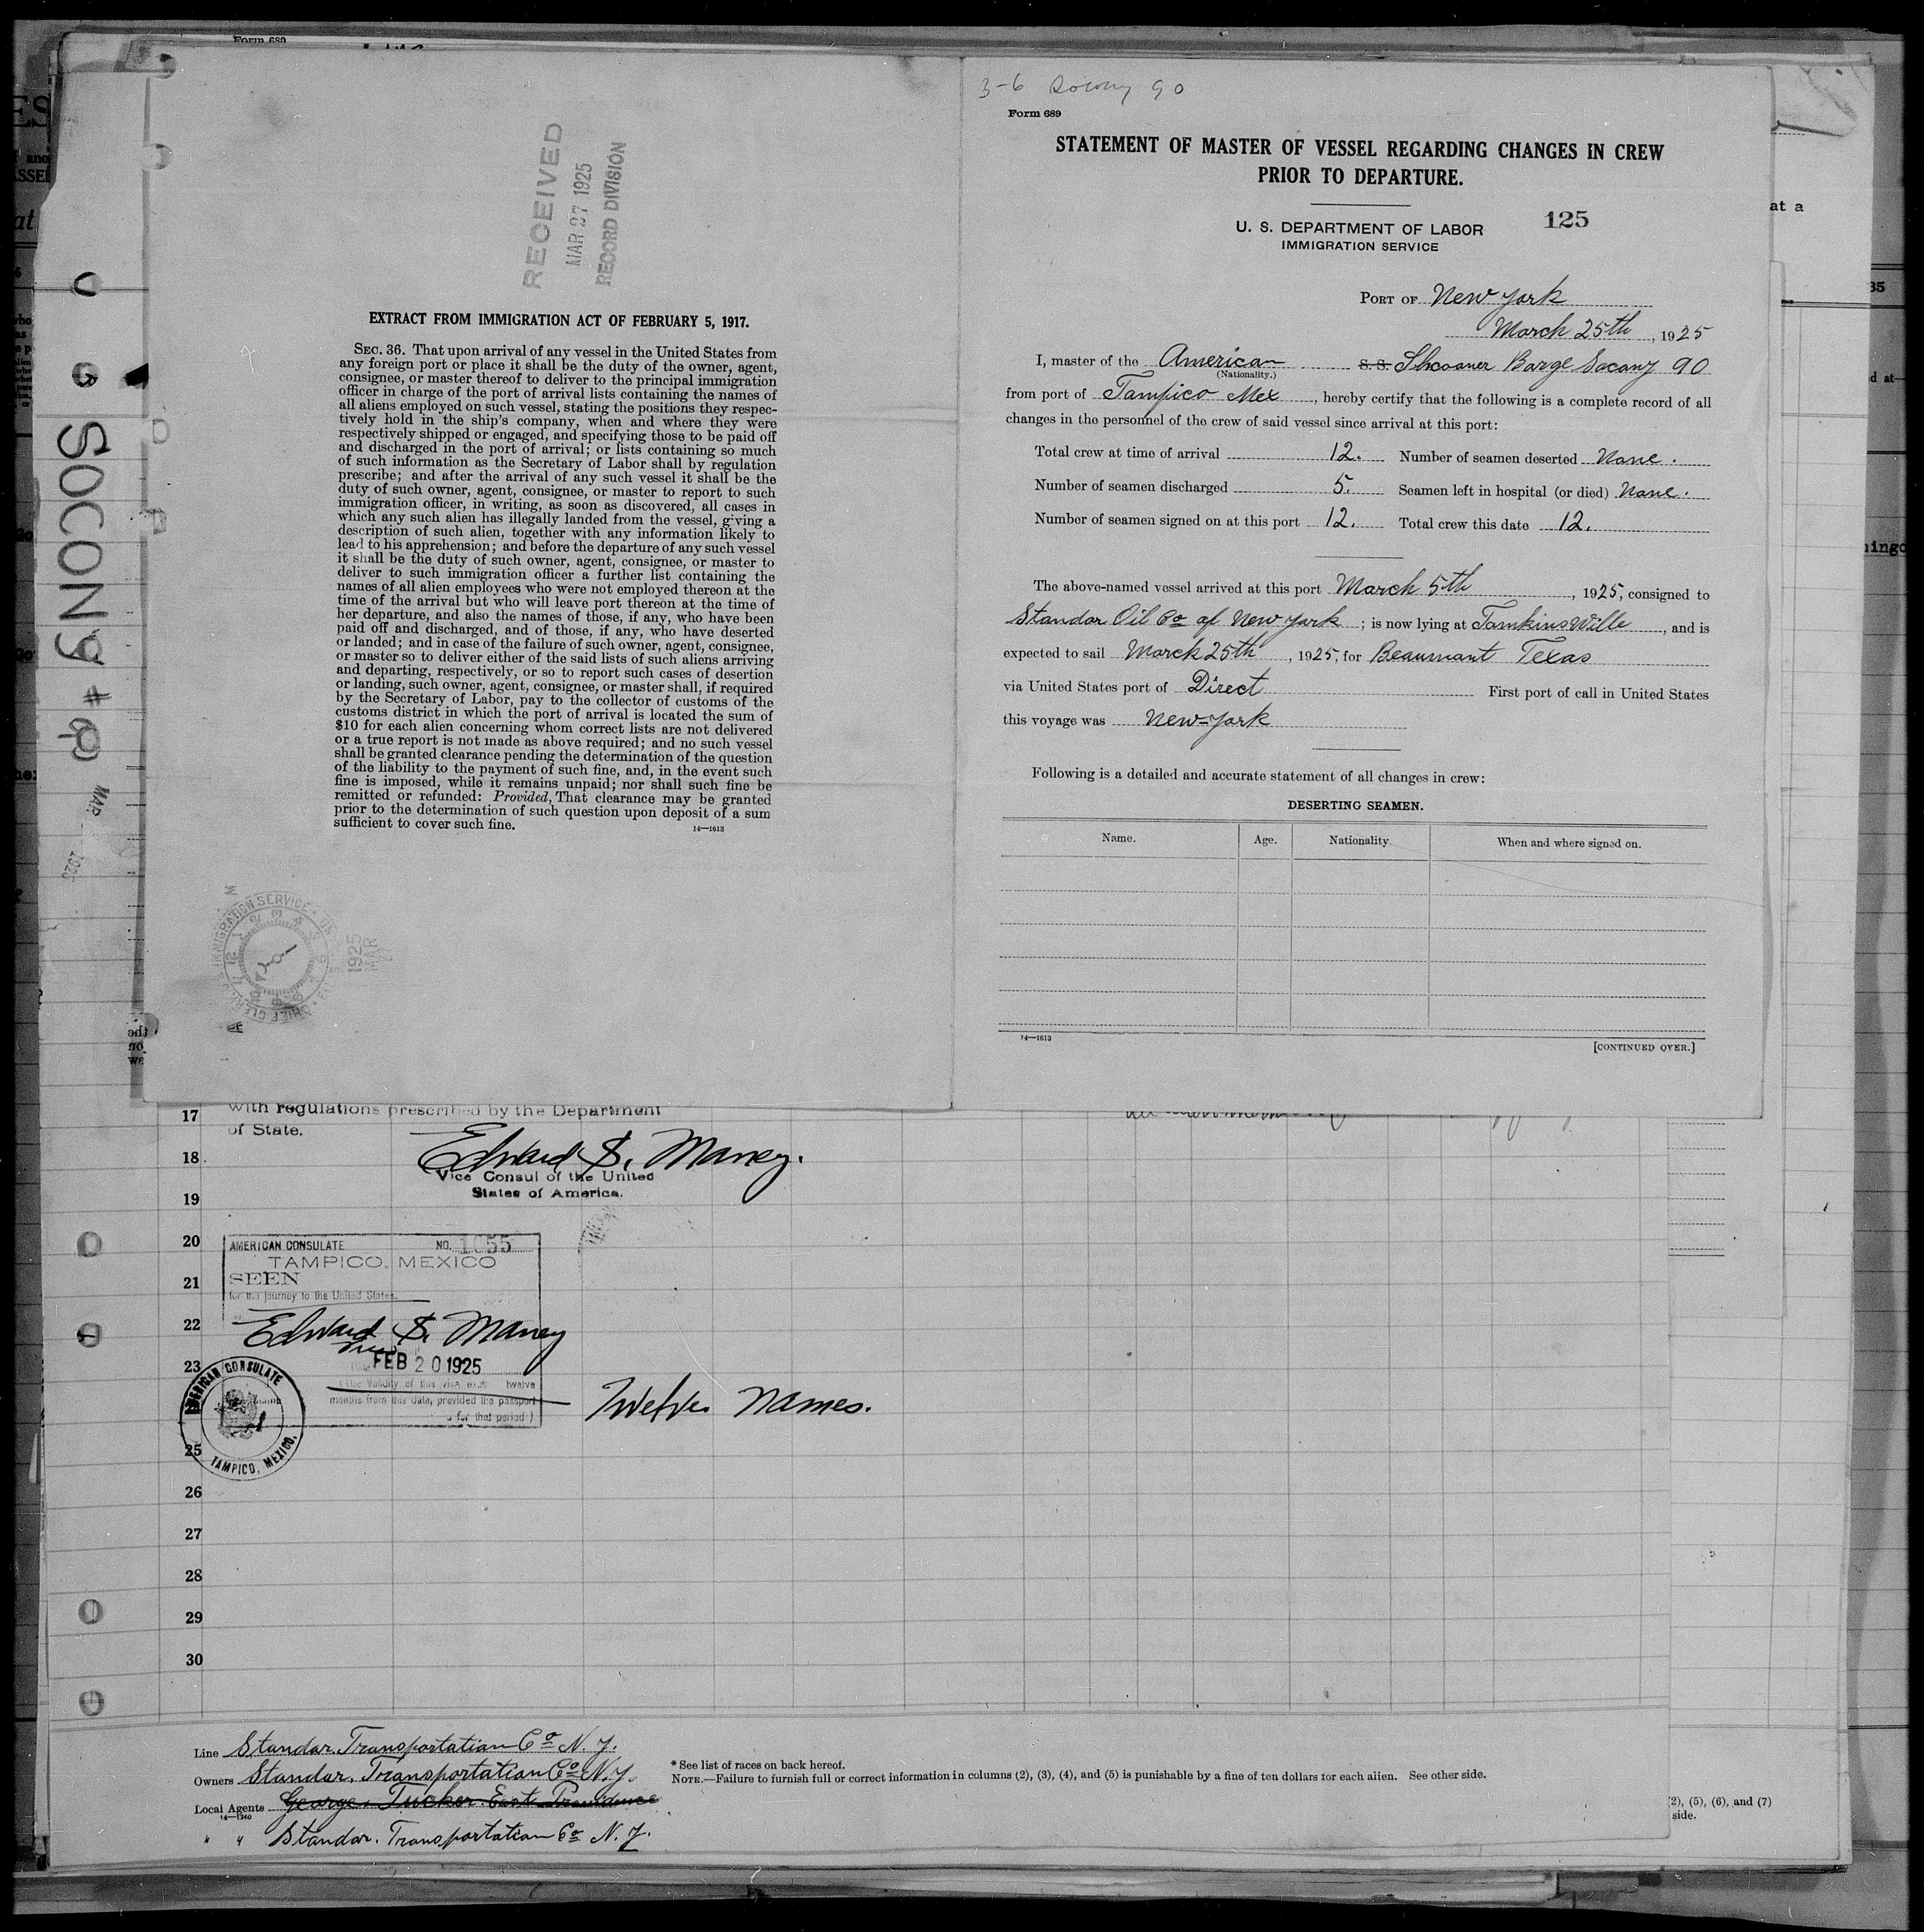 Form 689
RECEIVED
MAR 27 1925
RECORD DIVISION
EXTRACT FROM IMMIGRATION ACT OF FEBRUARY 5, 1917.
SEC. 36. That upon arrival of any vessel in the United States from
any foreign port or place it shall be the duty of the owner, agent,
consignee, or master thereof to deliver to the principal immigration
officer in charge of the port of arrival lists containing the names of
all aliens employed on such vessel, stating the positions they respec-
tively hold in the ship's company, when and where they were
respectively shipped or engaged, and specifying those to be paid off
and discharged in the port of arrival; or lists containing so much
of such information as the Secretary of Labor shall by regulation
prescribe; and after the arrival of any such vessel it shall be the
duty of such owner, agent, consignee, or master to report to such
immigration officer, in writing, as soon as discovered, all cases in
which any such alien has illegally landed from the vessel, giving a
description of such alien, together with any information likely to
lead to his apprehension; and before the departure of any such vessel
it shall be the duty of such owner, agent, consignee, or master to
deliver to such immigration officer a further list containing the
names of all alien employees who were not employed thereon at the
time of the arrival but who will leave port thereon at the time of
her departure, and also the names of those, if any, who have been
paid off and discharged, and of those, if any, who have deserted
or landed; and in case of the failure of such owner, agent, consignee,
or master so to deliver either of the said lists of such aliens arriving
and departing, respectively, or so to report such cases of desertion
or landing, such owner, agent, consignee, or master shall, if required
by the Secretary of Labor, pay to the collector of customs of the
customs district in which the port of arrival is located the sum of
$10 for each alien concerning whom correct lists are not delivered
or a true report is not made as above required; and no such vessel
shall be granted clearance pending the determination of the question
of the liability to the payment of such fine, and, in the event such
fine is imposed, while it remains unpaid; nor shall such fine be
remitted or refunded: Provided, That clearance may be granted
prior to the determination of such question upon deposit of a sum
sufficient to cover such fine.
14—1613
SOCONY #90
MAR 1925
3-6 Socony 90
Form 689
STATEMENT OF MASTER OF VESSEL REGARDING CHANGES IN CREW
PRIOR TO DEPARTURE.
U. S. DEPARTMENT OF LABOR
IMMIGRATION SERVICE
125
PORT OF New York
March 25th, 1925
I, master of the American S. S. Shcooner Barge Socony 90
(Nationality.)
from port of Tampico Mex, hereby certify that the following is a complete record of all
changes in the personnel of the crew of said vessel since arrival at this port:
Total crew at time of arrival 12. Number of seamen deserted None.
Number of seamen discharged 5. Seamen left in hospital (or died) None.
Number of seamen signed on at this port 12. Total crew this date 12.
The above-named vessel arrived at this port March 5th, 1925, consigned to
Standar Oil Co of New York; is now lying at TomkinsWille, and is
expected to sail March 25th, 1925, for Beaumont Texas
via United States port of Direct First port of call in United States
this voyage was New-York
Following is a detailed and accurate statement of all changes in crew:
DESERTING SEAMEN.
Name. Age. Nationality. When and where signed on.
14—1613
[CONTINUED OVER.]
17
with regulations prescribed by the Department
of State.
18
Edward S. Maney.
Vice Consul of the United
States of America.
19
20
AMERICAN CONSULATE NO. 1055
TAMPICO, MEXICO
21
SEEN
for the journey to the United States.
22
Edward S. Maney
23
FEB 20 1925
(The Validity of this visa twelve
months from this date, provided the passport
for that period)
AMERICAN CONSULATE
TAMPICO, MEXICO.
Twelve Names.
25
26
27
28
29
30
Line Standar. Transportation Co N. Y.
Owners Standar. Transportation Co N. Y.
Local Agents George. Tucker. East Providence
14—1240
" " Standar. Transportation Co N. Y.
* See list of races on back hereof.
NOTE.—Failure to furnish full or correct information in columns (2), (3), (4), and (5) is punishable by a fine of ten dollars for each alien. See other side.
(2), (5), (6), and (7)
side.